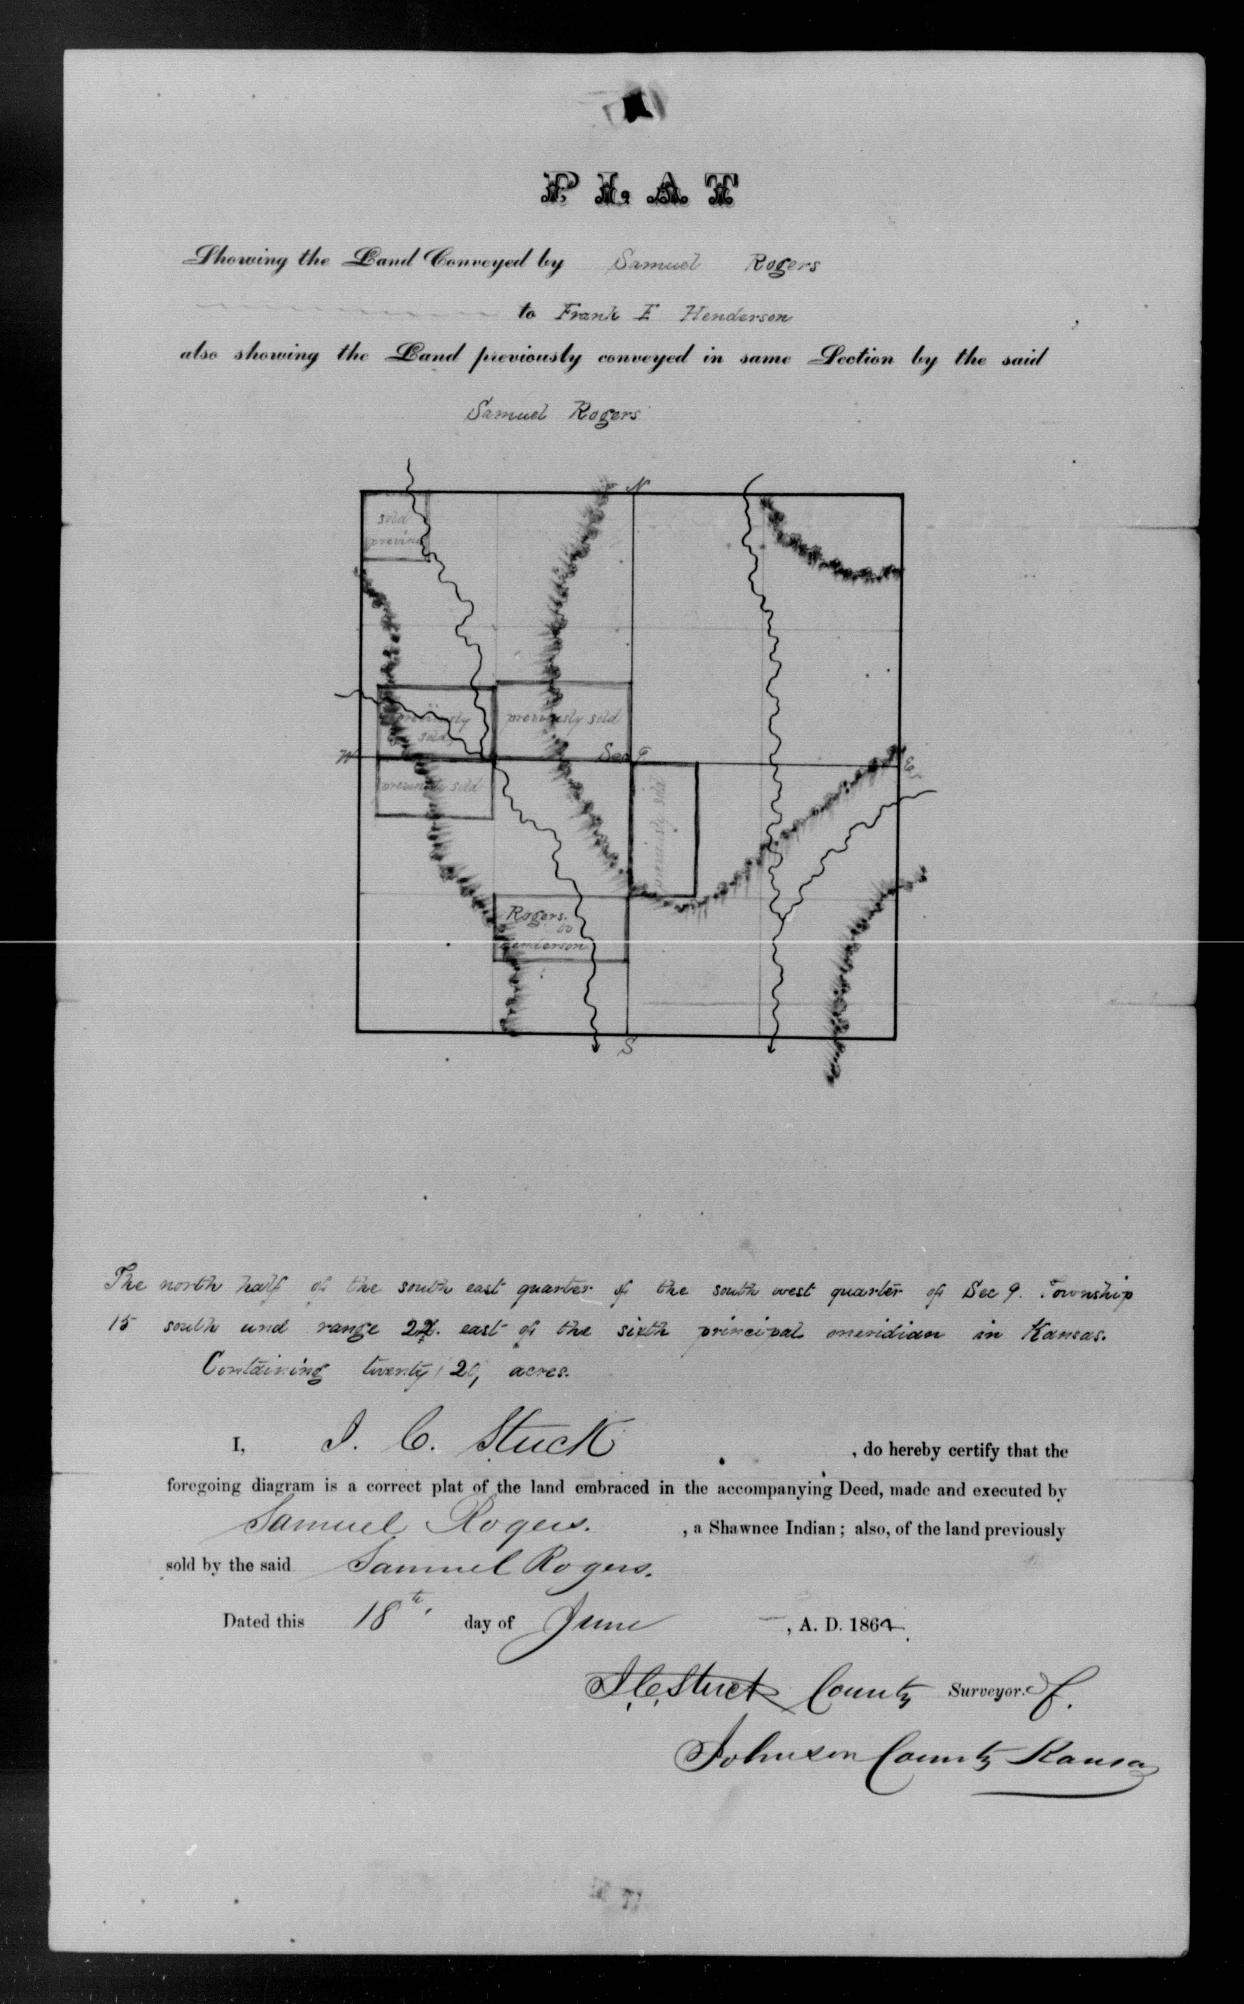 PLAT
Showing the Land Conveyed by Samuel Rogers
to Frank E Henderson
also showing the Land previously conveyed in same Section by the said
Samuel Rogers
N
sold
previous
previously
sold
previously sold
W
Sec 9
E
previously sold
previously sold
Rogers
to
Henderson
S
The north half of the south east quarter of the south west quarter of Sec 9. Township
15 south and range 22. east of the sixth principal meridian in Kansas.
Containing twenty 20, acres.
I, J. C. Stuck , do hereby certify that the
foregoing diagram is a correct plat of the land embraced in the accompanying Deed, made and executed by
Samuel Rogers. , a Shawnee Indian; also, of the land previously
sold by the said Samuel Rogers.
Dated this 18th. day of June , A. D. 1864.
J. C. Stuck County Surveyor. of.
Johnson County Kansas